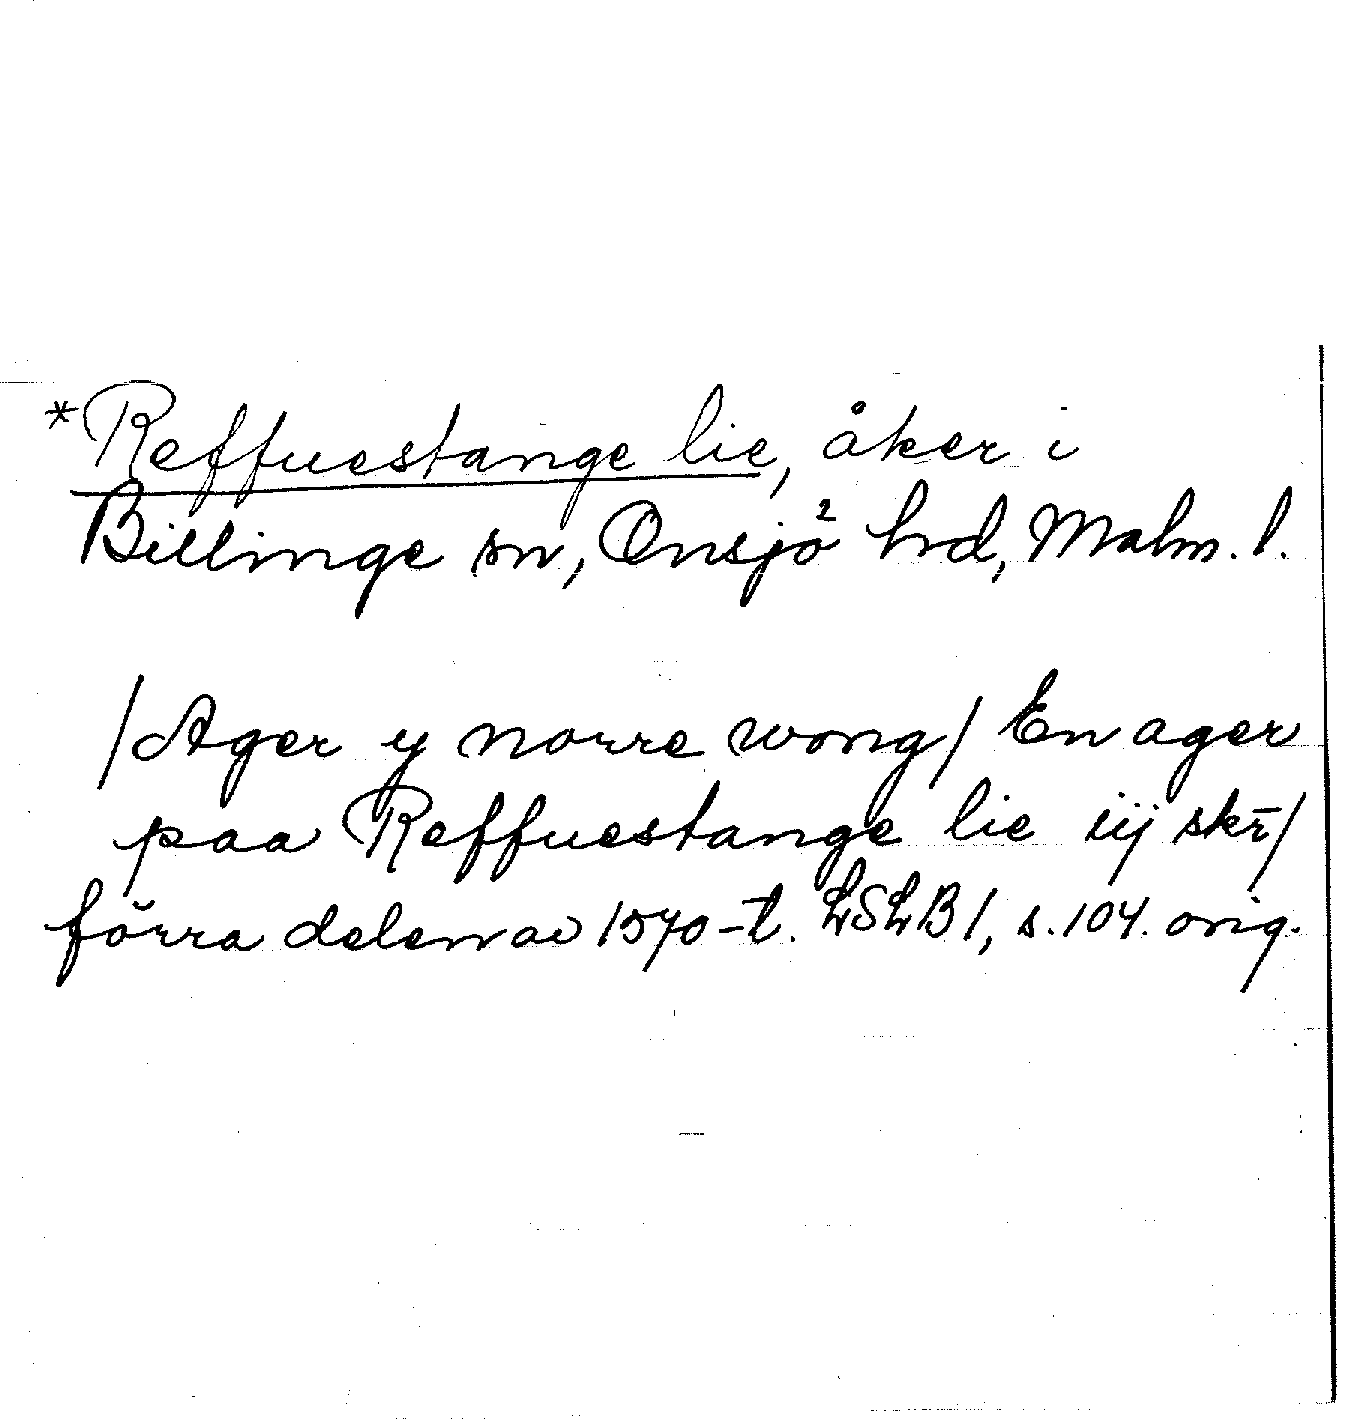 *Reffuestange lie, åker i
Billinge sn, Onsjö hrd, Malm. l.
/Ager y norre wong/ En ager
paa Reffuestange lie iij skr̄/
förra delen av 1570-t. LSLB 1, s. 104. orig.